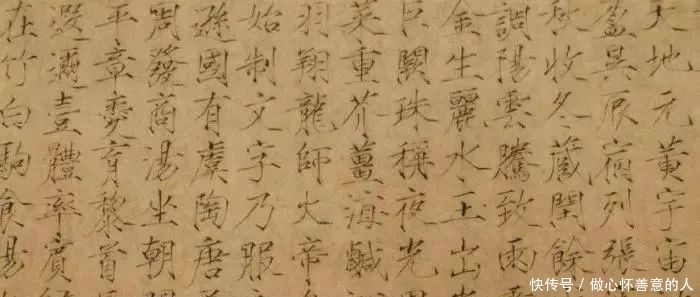 天地元黃宇宙
盈昃辰宿列張
秋收冬藏閏餘
調陽雲騰致雨
金生麗水玉出
巨闕珠稱夜光
菜重芥薑海鹹
羽翔龍師火帝
始制文字乃服
遜國有虞陶唐
周發商湯坐朝
平章愛育黎首
遐邇壹體率賓
在竹白駒食場
快传号 / 做心怀善意的人